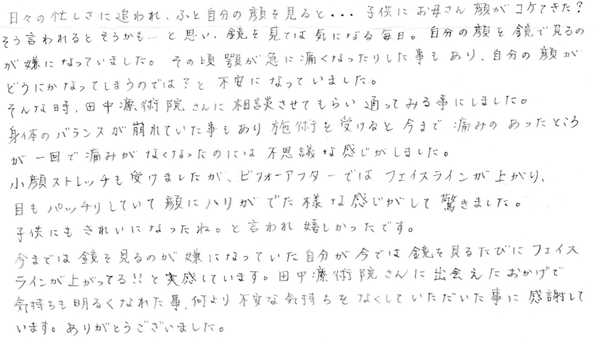 日々の忙しさに追われ、ふと自分の顔を見ると・・・子供にお母さん顔がコケてきた?
そう言われるとそうかも…と思い、鏡を見ては気になる毎日。自分の顔を鏡で見るの
が嫌になっていました。その頃顎が急に痛くなったりした事もあり、自分の顔が
どうにかなってしまうのでは?と不安になっていました。
そんな時、田中療術院さんに相談させてもらい通ってみる事にしました。
身体のバランスが崩れていた事もあり施術を受けると今まで痛みのあったところ
が一回で痛みがなくなったのには不思議な感じがしました。
小顔ストレッチも受けましたが、ビフォーアフターではフェイスラインが上がり、
目もパッチリしていて顔にハリがでた様な感じがして驚きました。
子供にもきれいになったね。と言われ嬉しかったです。
今までは鏡を見るのが嫌になっていた自分が今では鏡を見るたびにフェイス
ラインが上がってる!!と実感しています。田中療術院さんに出会えたおかげで
気持ちも明るくなれた事、何より不安な気持ちをなくしていただいた事に感謝して
います。ありがとうございました。